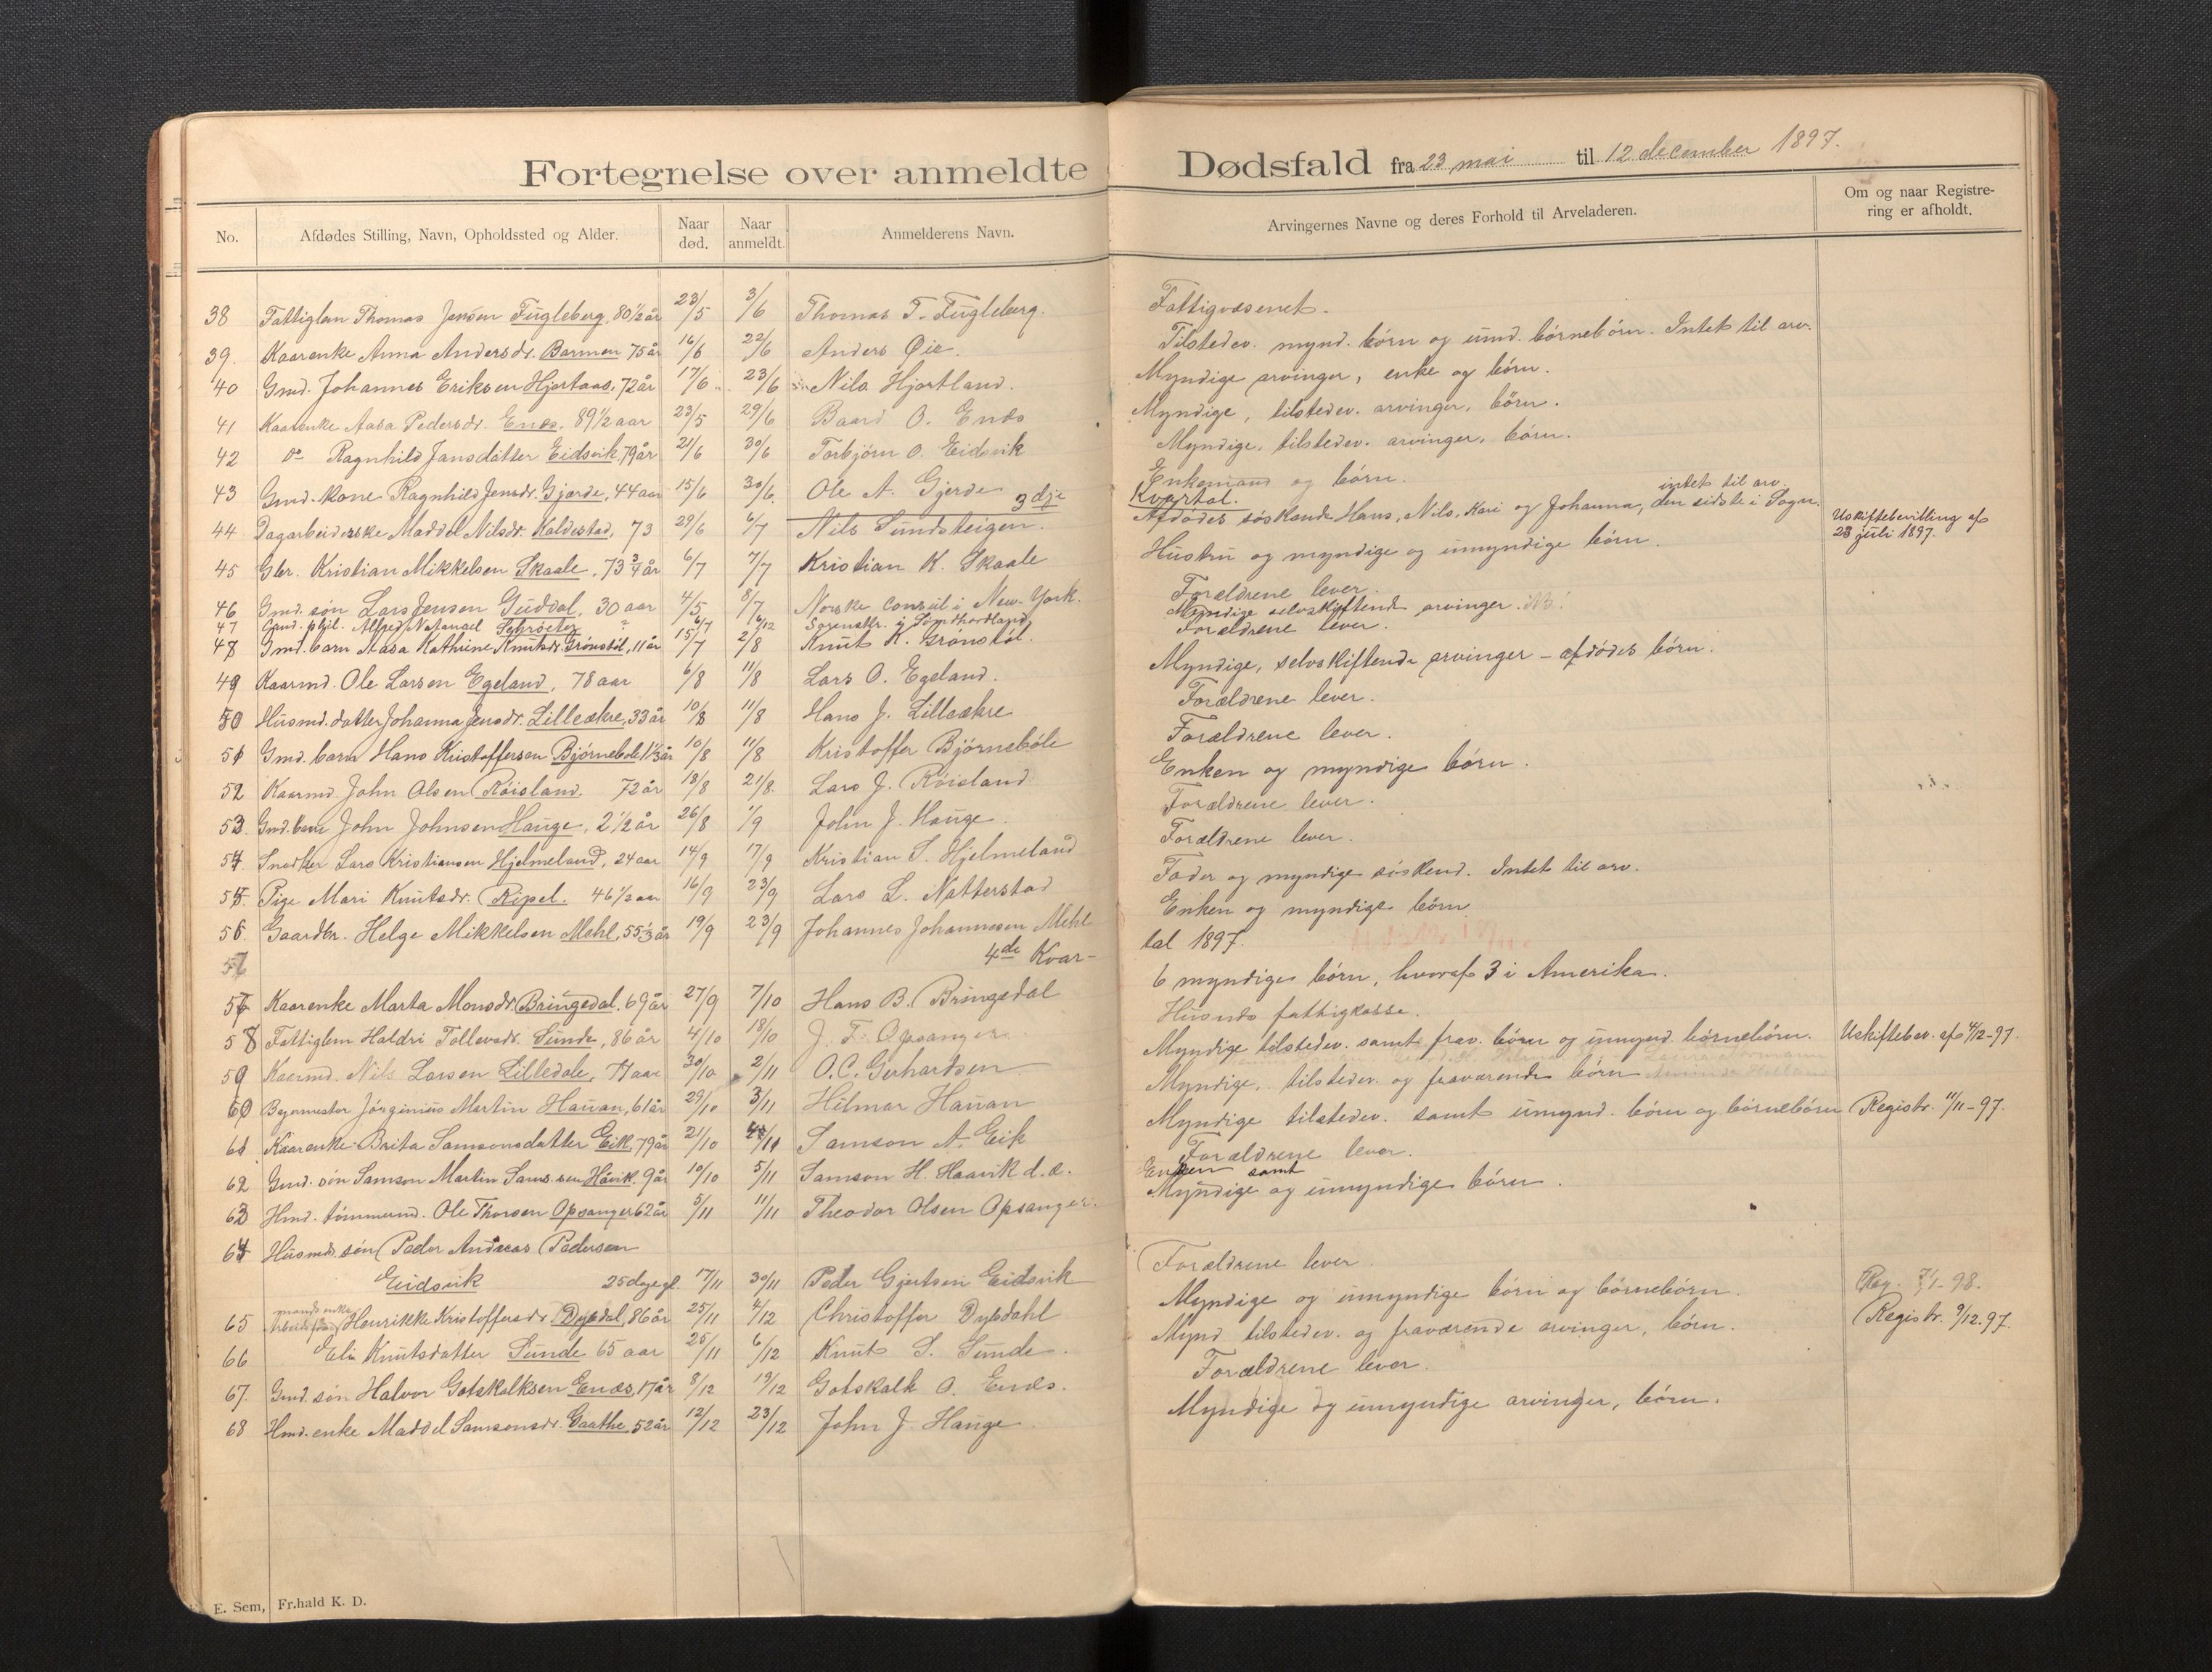 Fortegnelse over anmeldte Dødsfald fra 23 mai til 12 december 1897.
No. Afdødes Stilling, Navn, Opholdssted og Alder. Naar død. Naar anmeldt. Anmelderens Navn. Arvingernes Navne og deres Forhold til Arveladeren. Om og naar Registrering er afholdt.
38 Fattiglem Thomas Jensen Fugleberg, 80 1/2 år 23/5 3/6 Thomas T. Fugleberg. Fattigvæsenet.
39. Kaarenke Anna Andersdr. Barmen 75 år 16/6 22/6 Anders Øie. Tilstedev. mynd. børn og umd. børnebørn. Intet til arv.
40 Gmd. Johannes Eriksen Hjortaas, 72 år 17/6 23/6 Nils Hjortland. Myndige arvinger, enke og børn.
41 Kaarenke Aasa Pedersdr. Enæs. 89 1/2 aar 23/5 29/6 Baard O. Enæs Myndige, tilstedev. arvinger, børn.
42 do Ragnhild Jansdatter Eidsvik, 79 år 21/6 30/6 Torbjørn O. Eidsvik Myndige, tilstedev. arvinger, børn.
43 Gmd. kone Ragnhild Jensdr. Gjærde, 44 aar 15/6 30/6. Ole A. Gjerde Enkemand og børn.
3dje Kvartal.
44 Dagarbeiderske Maddel Nilsdr. Kaldestad, 73 29/6 6/7 Nils Sundsteigen. Afdødes søskende Hans, Nils, Kari og Johanna, den sidste i Sogn. intet til arv.
45 Gbr. Kristian Mikkelsen Skaale, 73 3/4 år 6/7 7/7 Kristian K. Skaale Hustru og myndige og umyndige børn. Uskiftebevilling af 28 juli 1897.
46 Gmd. søn Lars Jensen Guddal, 30 aar 4/5 8/7 Norske consul i New-York. Forældrene lever.
47 Cand. phil. Alfred Natanael Schrøeter ? 6/7 6/12 Sorenskr. i Søndhordland Myndige selvskiftende arvinger.
48 Gmd. barn Aasa Kathrine Knutsdr. Grønstøl, 11 år 15/7 2/8 Knut K. Grønstøl. Forældrene lever.
49 Kaarmd. Ole Larsen Egeland, 78 aar 6/8 11/8 Lars O. Egeland. Myndige, selvskiftende arvinger – afdødes børn.
50 Husmd. datter Johanna Jensdr. Lilleækre, 33 år 10/8 11/8 Hans J. Lilleækre Forældrene lever.
51 Gmd. barn Hans Kristoffersen Bjørnebøle 1 1/3 år 10/8 11/8 Kristoffer Bjørnebøle Forældrene lever.
52 Kaarmd. John Olsen Røisland. 72 år 18/8 21/8. Lars J. Røisland Enken og myndige børn.
53. Gmd. barn John Johnsen Hauge, 2 1/2 år 26/8 1/9 John J. Hauge. Forældrene lever.
54 Snedker Lars Kristiansen Hjelmeland, 24 aar 14/9 17/9 Kristian S. Hjelmeland Forældrene lever.
55 Pige Mari Knutsdr. Ripel. 46 1/2 aar 16/9 23/9 Lars L. Natterstad Fader og myndige søskend. Intet til arv.
56 Gaardbr. Helge Mikkelsen Mehl, 55 1/3 år 19/9 23/9 Johannes Johannesen Mehl Enken og myndige børn
4de Kvartal 1897.
57 Kaarenke Marta Monsdr. Bringedal. 69 år 27/9 7/10 Hans B. Bringedal 6 myndige børn, hvoraf 3 i Amerika.
58 Fattiglem Haldri Tollevsdr. Sunde, 86 år 4/10 18/10 J. T. Opsanger Husnæs fattigkasse.
59 Kaarmd. Nils Larsen Lilledale, 77 aar 30/10 2/11 O. C. Gerhardsen Myndige tilstedev. samt frav. børn og umynd. børnebørn. Uskiftebev. af 4/12-97.
60 Bygmester Jørginius Martin Hauan, 61 år 29/10 3/11 Hilmar Hauan Myndige, tilstedev. og fraværende børn
61 Kaarenke Brita Samsonsdatter Eik, 79 år 21/10 4/11 Samson A. Eik Myndige tilstedev. samt umynd. børn og børnebørn Registr. 11/11-97.
62 Gmd. søn Samson Martin Sams.sen Håvik 9 år 10/10 5/11 Samson H. Haavik d.æ. Forældrene lever.
63 Hmd. tømmermd. Ole Thorsen Opsanger 62 år 5/11 11/11 Theodor Olsen Opsanger. Enken samt Myndige og umyndige børn.
64 Husmds søn Peder Andreas Pedersen
Eidsvik 25 dage gl. 17/11 30/11 Peder Gjertsen Eidsvik Forældrene lever.
65 Arbeidsmands enke Henrikke Kristoffersdr. Dybdal, 86 år 25/11 4/12 Christoffer Dybdahl Myndige og umyndige børn og børnebørn. Reg. 7/1-98.
66 Eli Knutsdatter Sunde 65 aar 25/11 6/12 Knut S. Sunde. Mynd tilstedev. og fraværende arvinger, børn. Registr. 9/12.97.
67. Gmd. søn Halvor Gotskalksen Enæs, 17 år 8/12 19/12 Gotskalk O. Enæs. Forældrene lever.
68 Hmd. enke Maddel Samsonsdr. Gaathe, 52 år 12/12 23/12 John J. Hauge Myndige og umyndige arvinger, børn.
E. Sem, Fr.hald K. D.